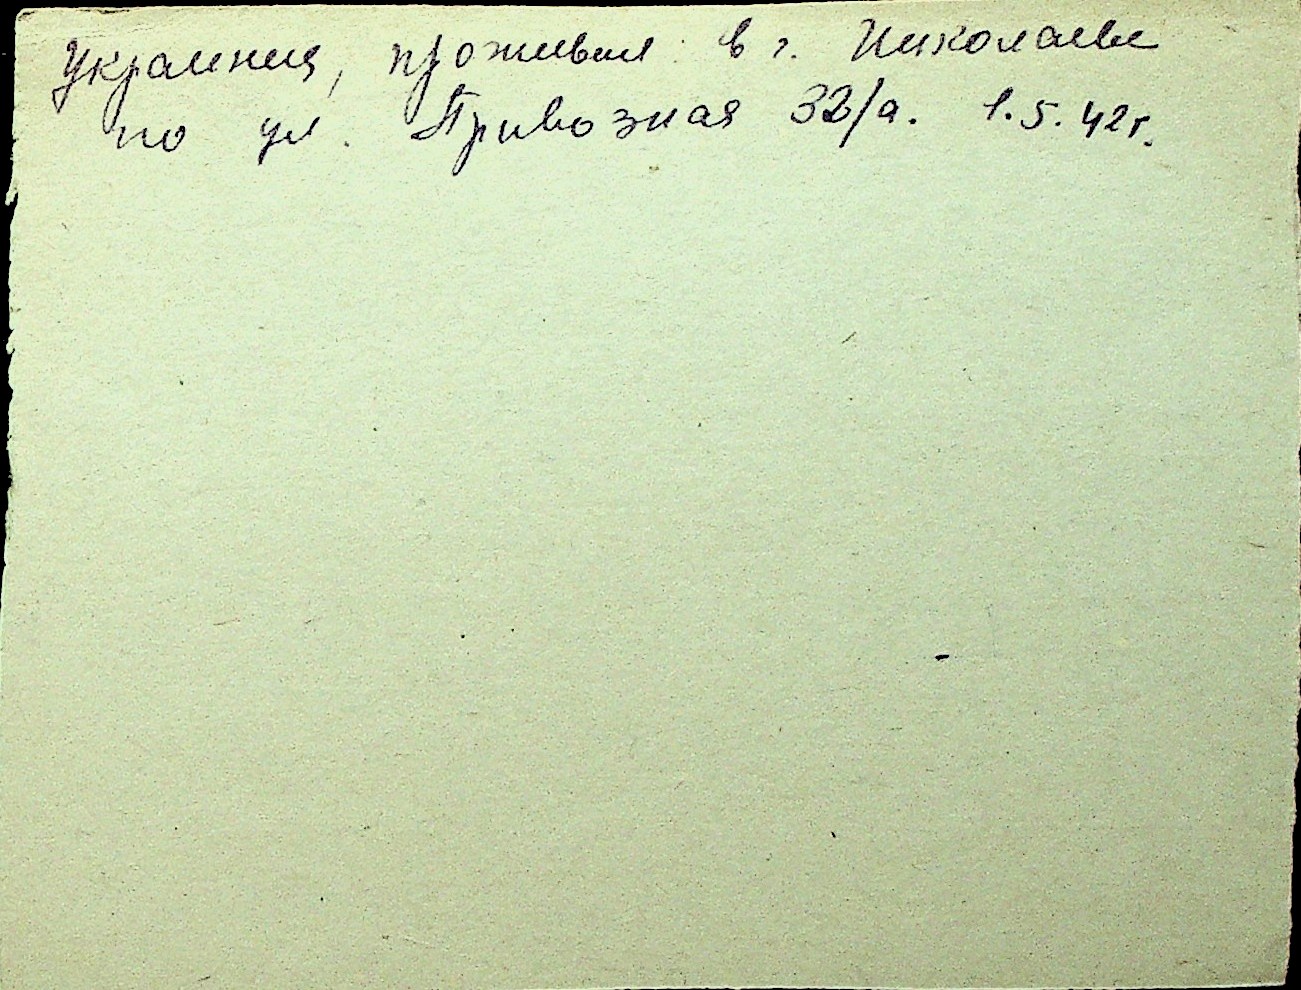 Украинец, проживал в г. Николаеве
по ул. Привозная 32/а. 1.5.42г.